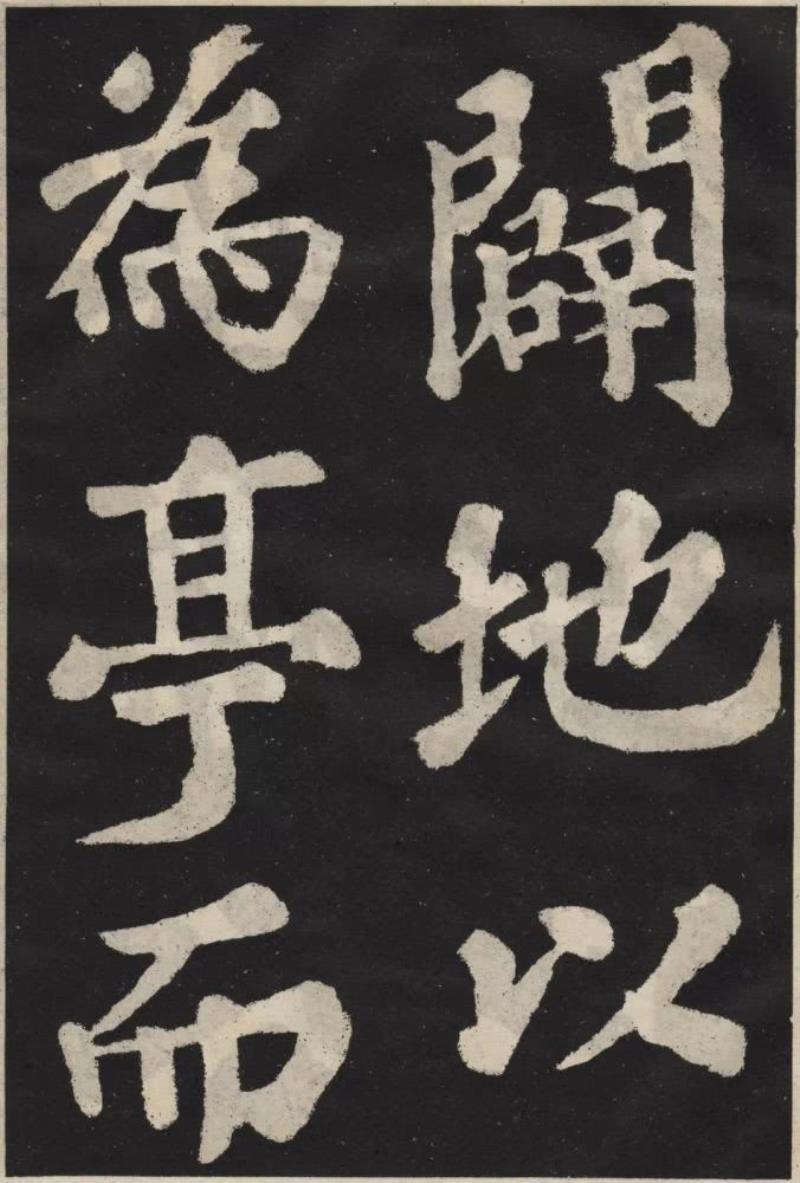 闢地以
為亭而